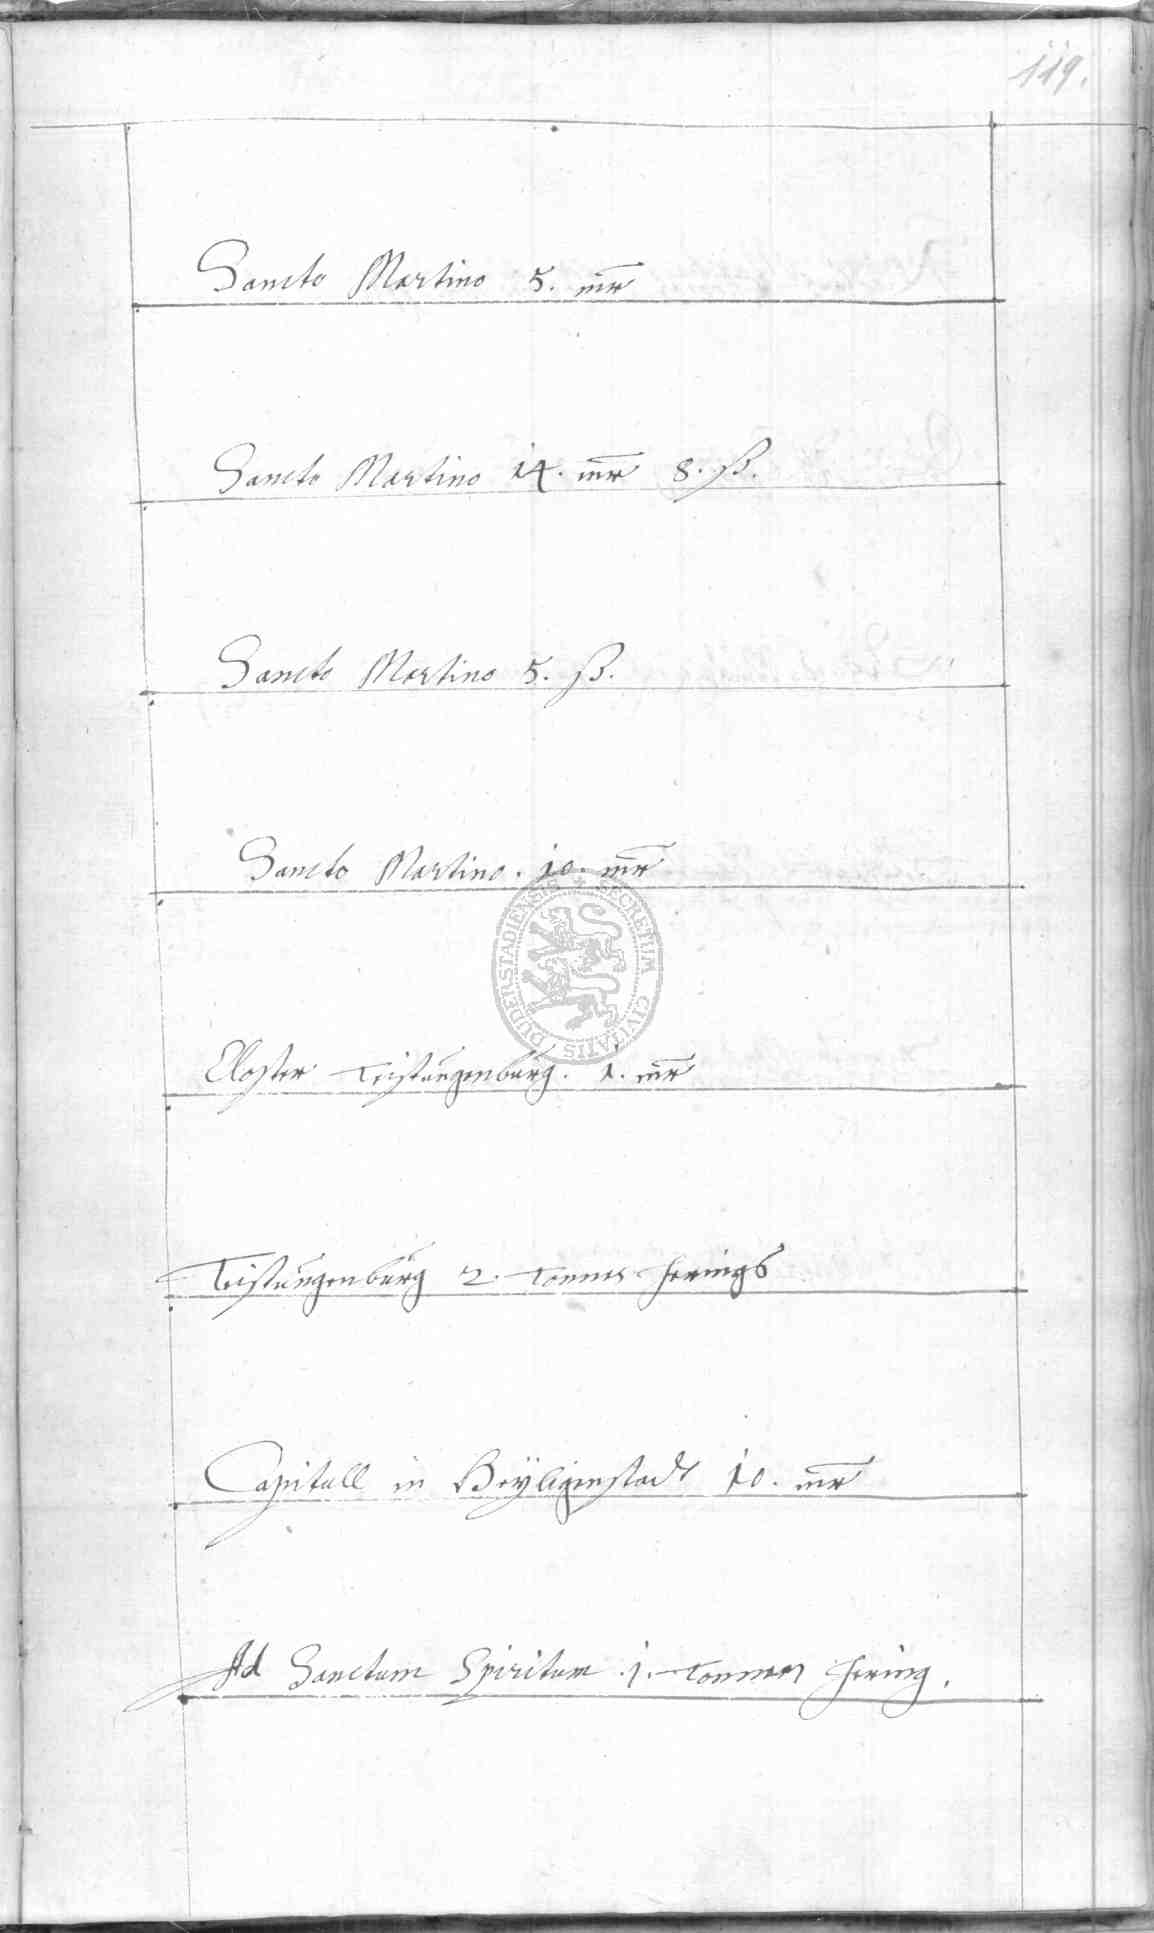 119.
Sancto Martino 5. mr
Sancto Martino 14. mr 8. ß.
Sancto Martino 5. ß.
Sancto Martino. 10. mr
SECRETUM CIVITATIS DUDERSTADIENSIS
Closter Teistungenburg. 1. mr
Teistungenburg 2. Tonnen Herings
Capitull in Heyligenstadt 10. mr
Ad Sanctum Spiritum .1. Tonnen Hering.